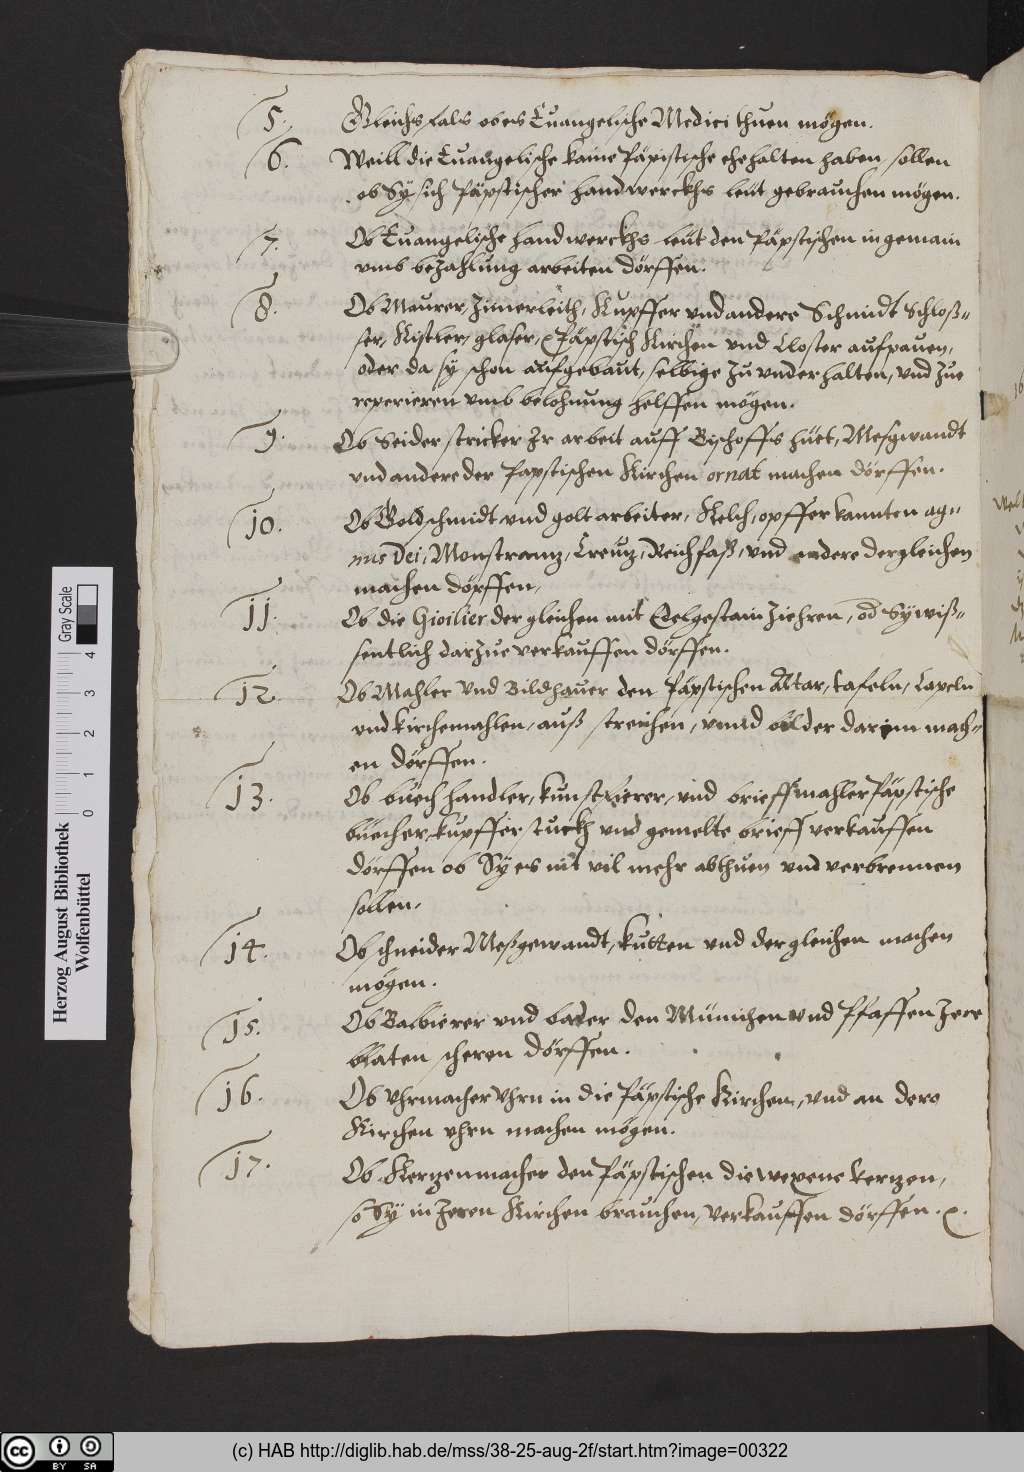 5. Gleichfals ob es Euangelische Medici thuen mögen.
6. Weill die Euangelische kaine Päpistische ehehalten haben sollen
ob Sy sich Päpstischer handwerckhs leüt gebrauchen mögen.
7. Ob Euangelische handwerckhs leüt den Päpstischen in gemain
vmb bezahlung arbeiten dörffen.
8. Ob Maurer, Zimerleith, Kupffer vnd andere Schmidt Schloß=
ser, Kistler, glaser, Päpstisch Kirchen vnd Closter aufpauen,
oder da sy schon aufgebaut, selbige zu vnderhalten, vnd zue
reperieren vmb belohnung helffen mögen.
9. Ob Seidenstricker Ir arbeit auff Bischoffs hüet, Meßgwandt
vnd andere der Papstischen Kirchen ornat machen dörffen.
10. Ob Goldschmidt vnd goltarbeiter, Kelch, opfferkannten ag=
nus Dei, Monstranz, Creuz, Reichfaß, vnd andere dergleichen
machen dörffen,
11. Ob die Gioilier dergleichen mit Edelgestain Ziehren, od Sy wiß=
sentlich darzue verkauffen dörffen.
12. Ob Mahler vnd Bildhauer den Päpstischen Altar, tafeln, Capeln
vnd kirchemahlen, auß streichen, vnnd bilder darein mach=
en dörffen.
13. Ob buech handler, kunstfierer, vnd brieffmahler Päpstische
büecher, kupfferstuckh vnd gemelte brieff verkauffen
dörffen ob Sy es nit vil mehr abthuen vnd verbrennen
sollen.
14. Ob schneider Meßgewandt, kutten vnd dergleichen machen
mögen.
15. Ob Balbierer vnd bader den Münichen vnd Pfaffen Iere
blaten scheren dörffen.
16. Ob Vhrmacher Vhrn in die Päpstische Kirchen, vnd an dero
Kirchen vhrn machen mögen.
17. Ob Kerzenmacher den Päpstischen die wexene kerzen,
so Sy in Ieren Kirchen brauchen, verkauffen dörffen.
Herzog August Bibliothek
Wolfenbüttel
0 1 2 3 4
Gray Scale
cc BY SA
(c) HAB http://diglib.hab.de/mss/38-25-aug-2f/start.htm?image=00322